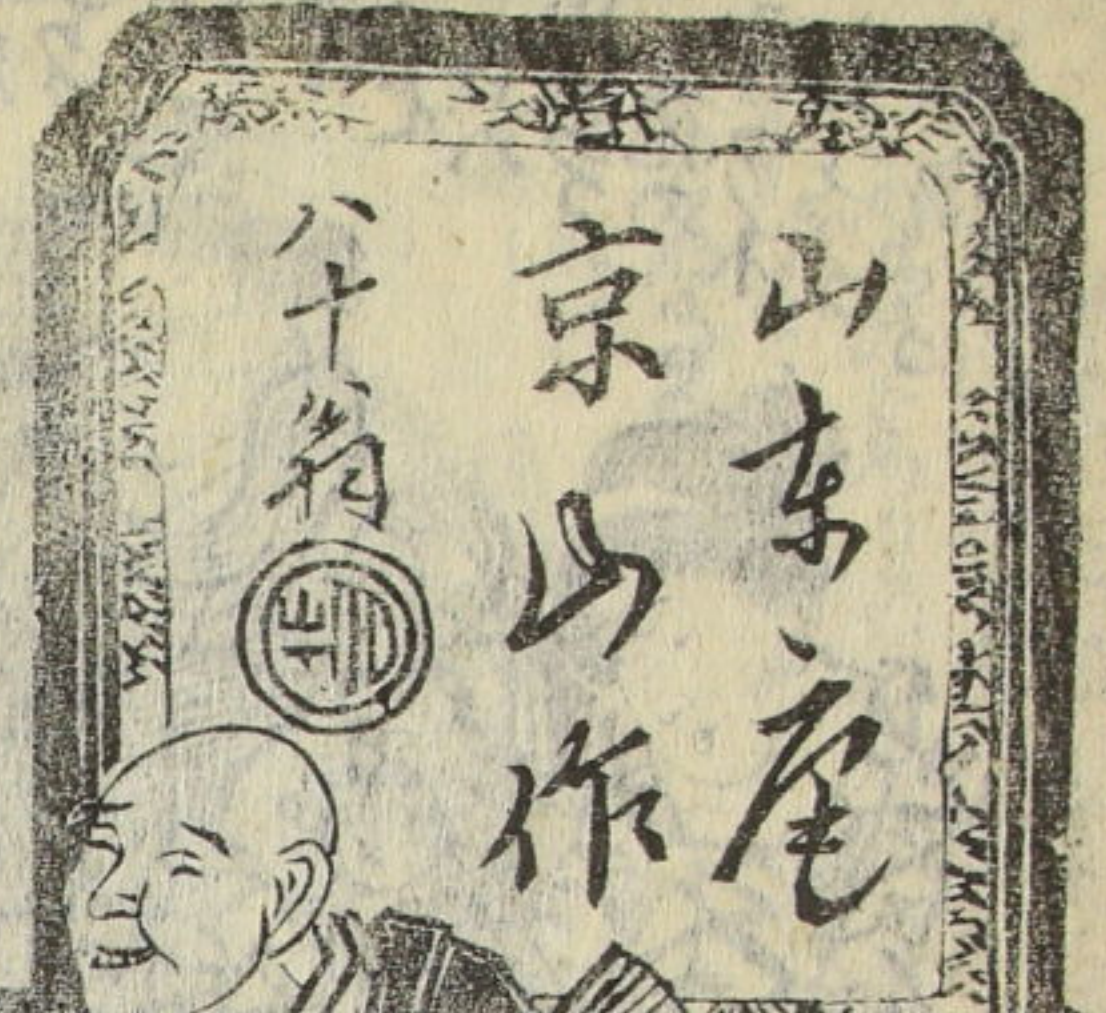 山东庵
京山作
八十翁